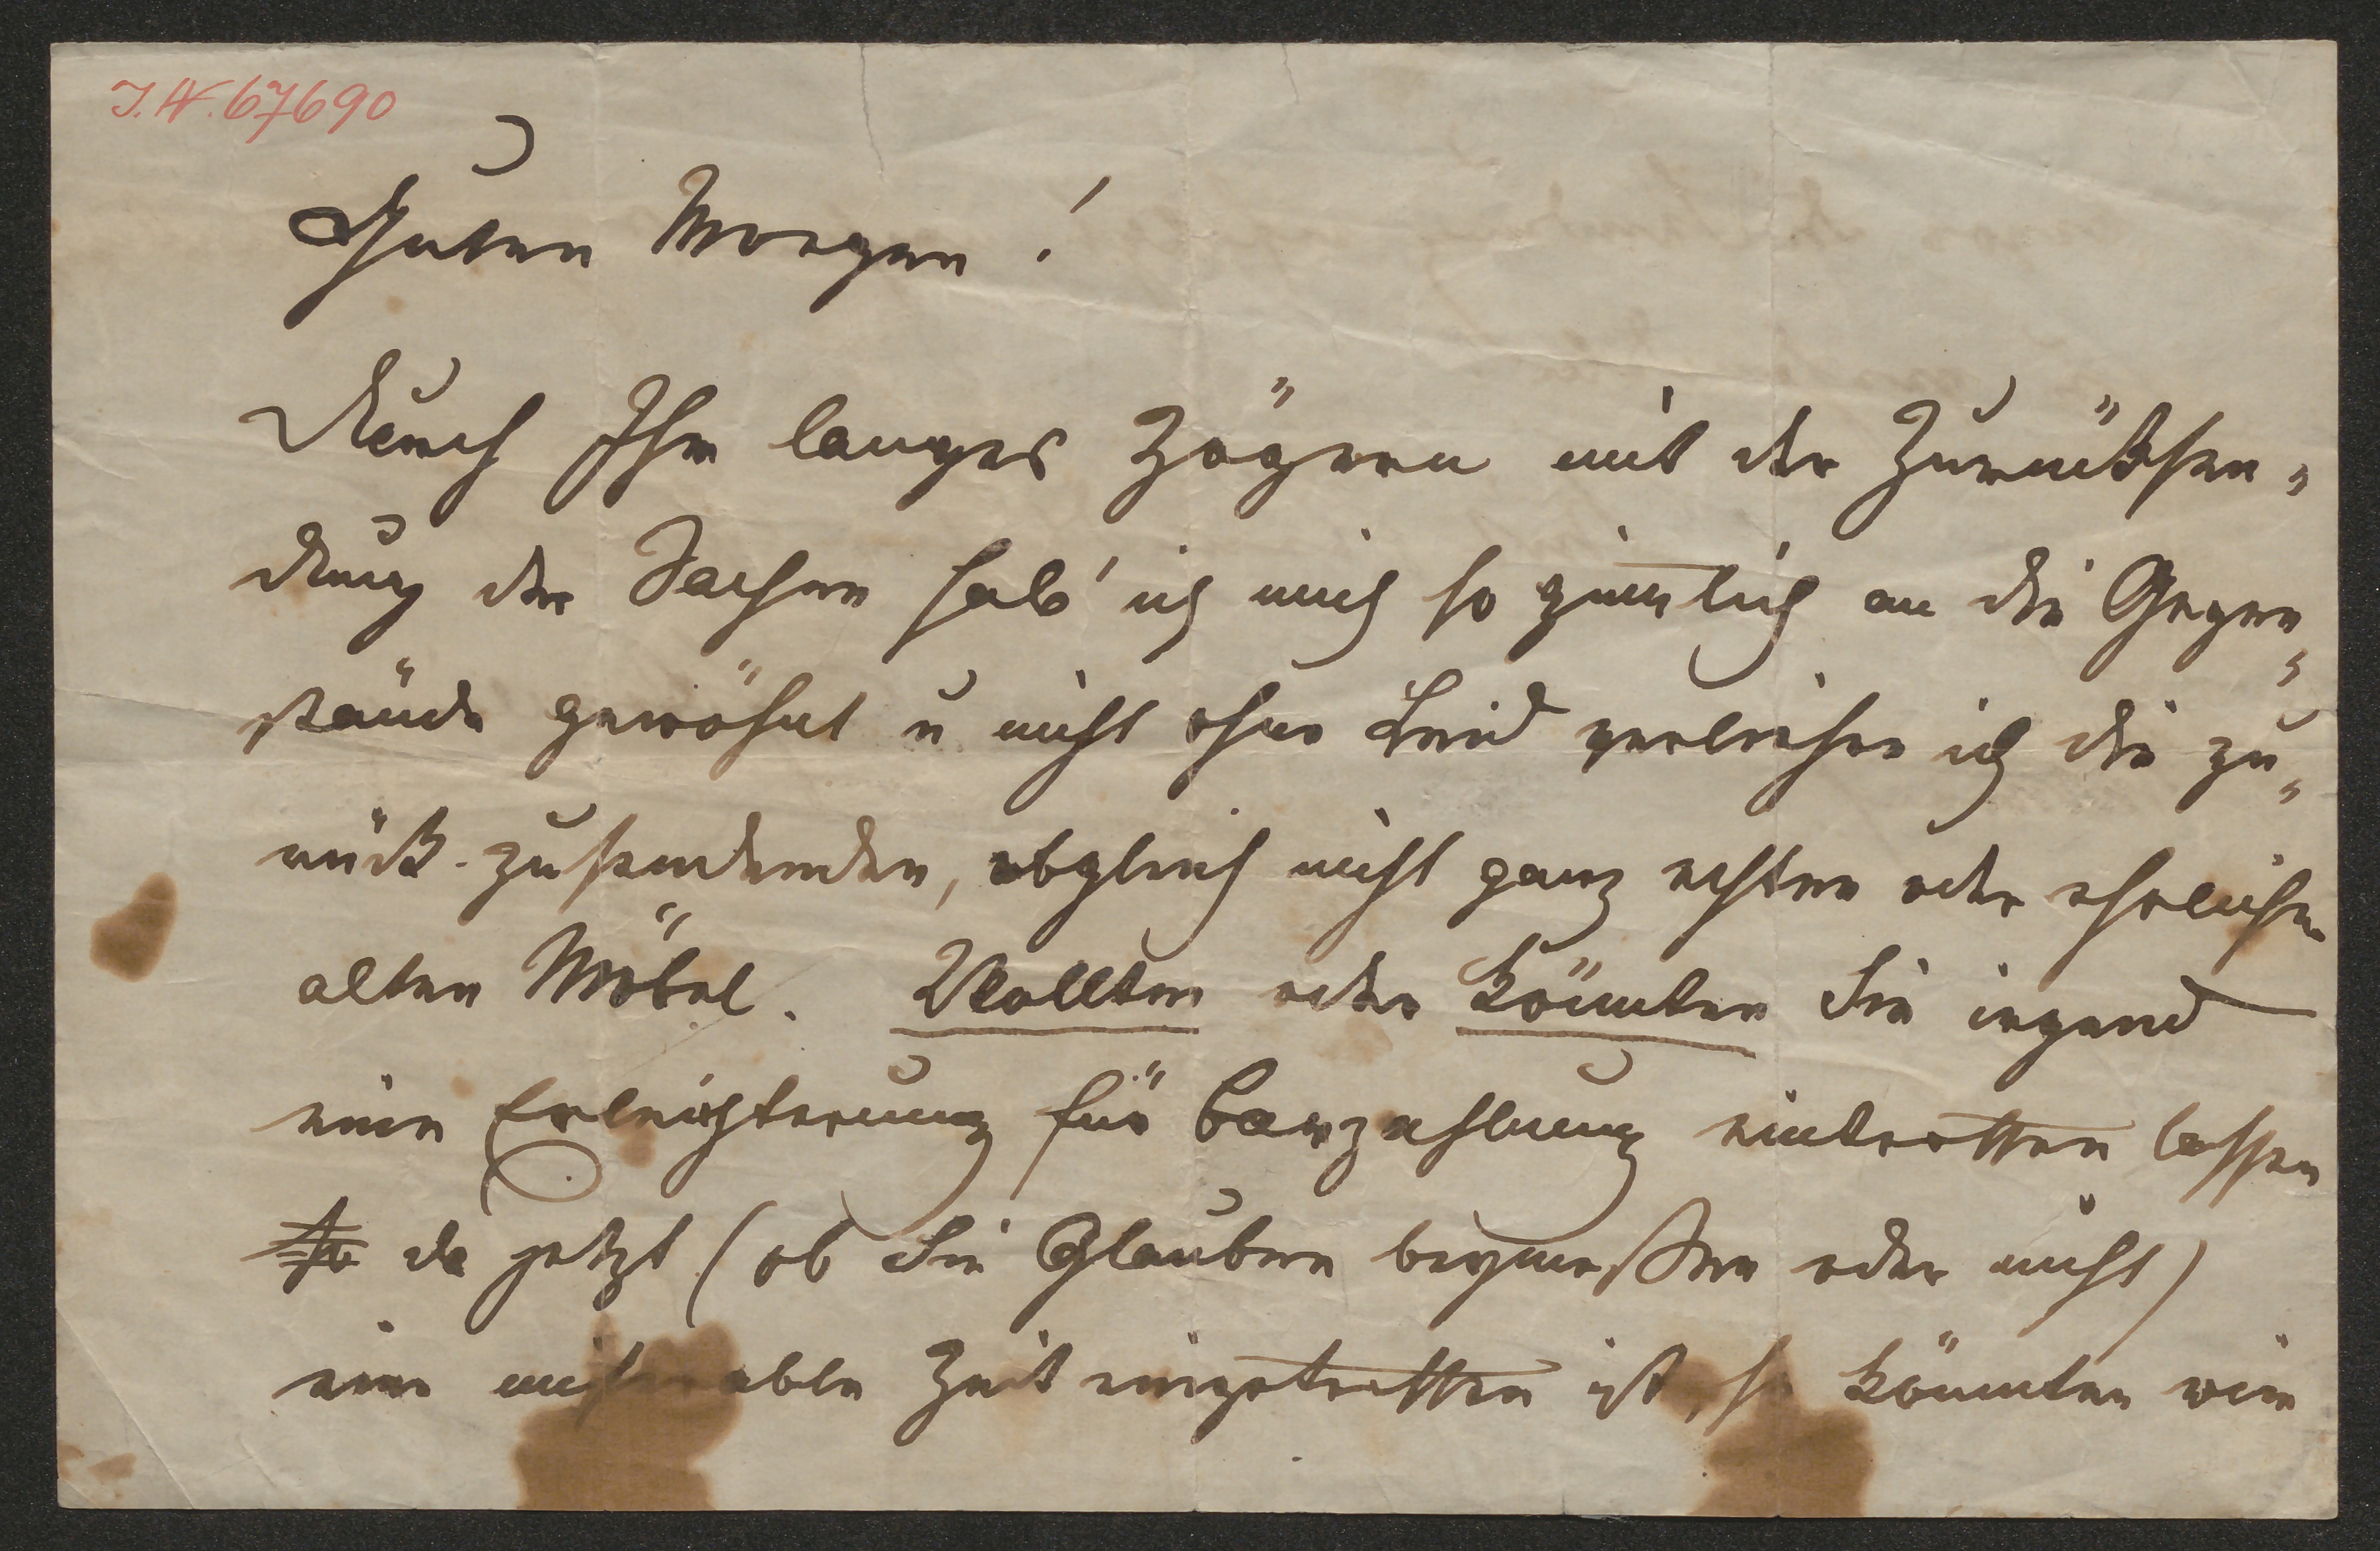 I.N. 67690
Guten Morgen!
Durch Ihr langes Zögern mit der Zurücksen=
dung der Sachen hab' ich mich so zimlich an die Gegen=
stände gewöhnt u nicht ohne Leid verliehre ich die zu=
rück-zusendenden, obgleich nicht ganz echten oder ehrlichen
alten Möbel. Wollten oder könnten Sie irgend
eine Erleichterung für Barzahlung eintretten lassen
da jetzt (ob Sie Glauben beymeßen oder nicht)
eine miserable Zeit eingetretten ist, so könnten wir